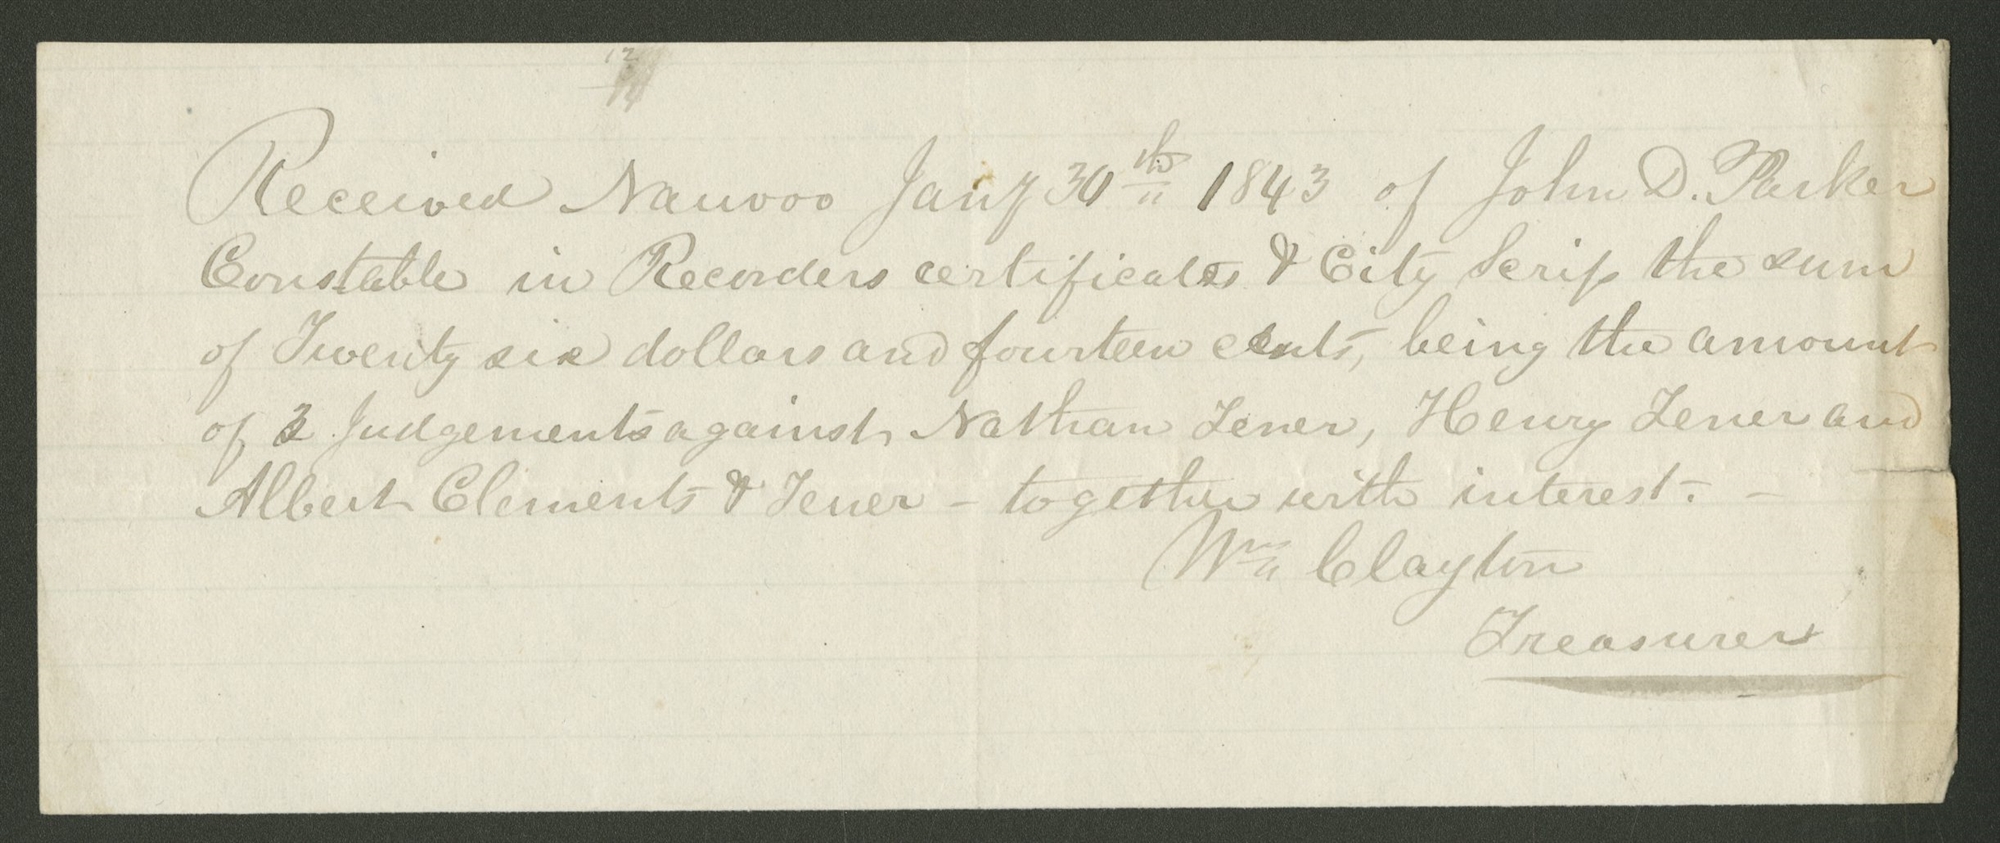 Received Nauvoo Jany 30th 1843 of John D. Parker
Constable in Recorders certificates & City Scrip the sum
of Twenty six dollars and fourteen cents, being the amount
of 3 Judgements against Nathan Tener, Henry Tener and
Albert Clements & Tener – together with interest. –
Wm Clayton
Treasurer